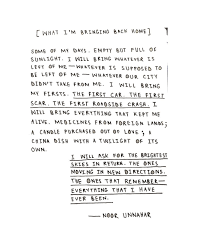 [ WHAT I'M BRINGING BACK HOME ]
SOME OF MY DAYS. EMPTY BUT FULL OF
SUNLIGHT. I WILL BRING WHATEVER IS
LEFT OF ME — WHATEVER IS SUPPOSED TO
BE LEFT OF ME — WHATEVER OUR CITY
DIDN'T TAKE FROM ME. I WILL BRING
MY FIRSTS. THE FIRST CAR. THE FIRST
SCAR. THE FIRST ROADSIDE CRASH. I
WILL BRING EVERYTHING THAT KEPT ME
ALIVE. MEDICINES FROM FOREIGN LANDS;
A CANDLE PURCHASED OUT OF LOVE; A
CHINA DISH WITH A TWILIGHT OF ITS
OWN.
I WILL ASK FOR THE BRIGHTEST
SKIES IN RETURN. THE ONES
MOVING IN NEW DIRECTIONS.
THE ONES THAT REMEMBER—
EVERYTHING THAT I HAVE
EVER BEEN.
— NOOR UNNAHAR